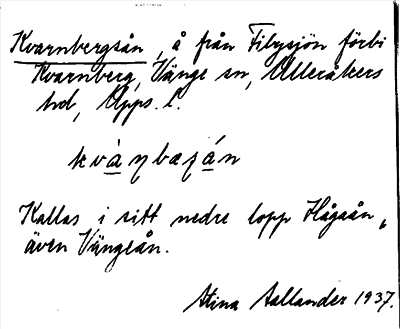 Kvarnbergsån, å från Filysjön förbi
Kvarnberg, Vänge sn, Ulleråkers
hd, Upps. l.
kvàṇbæṣán
Kallas i sitt nedre lopp Hågaån,
även Vängeån.
Stina Aallander 1937.